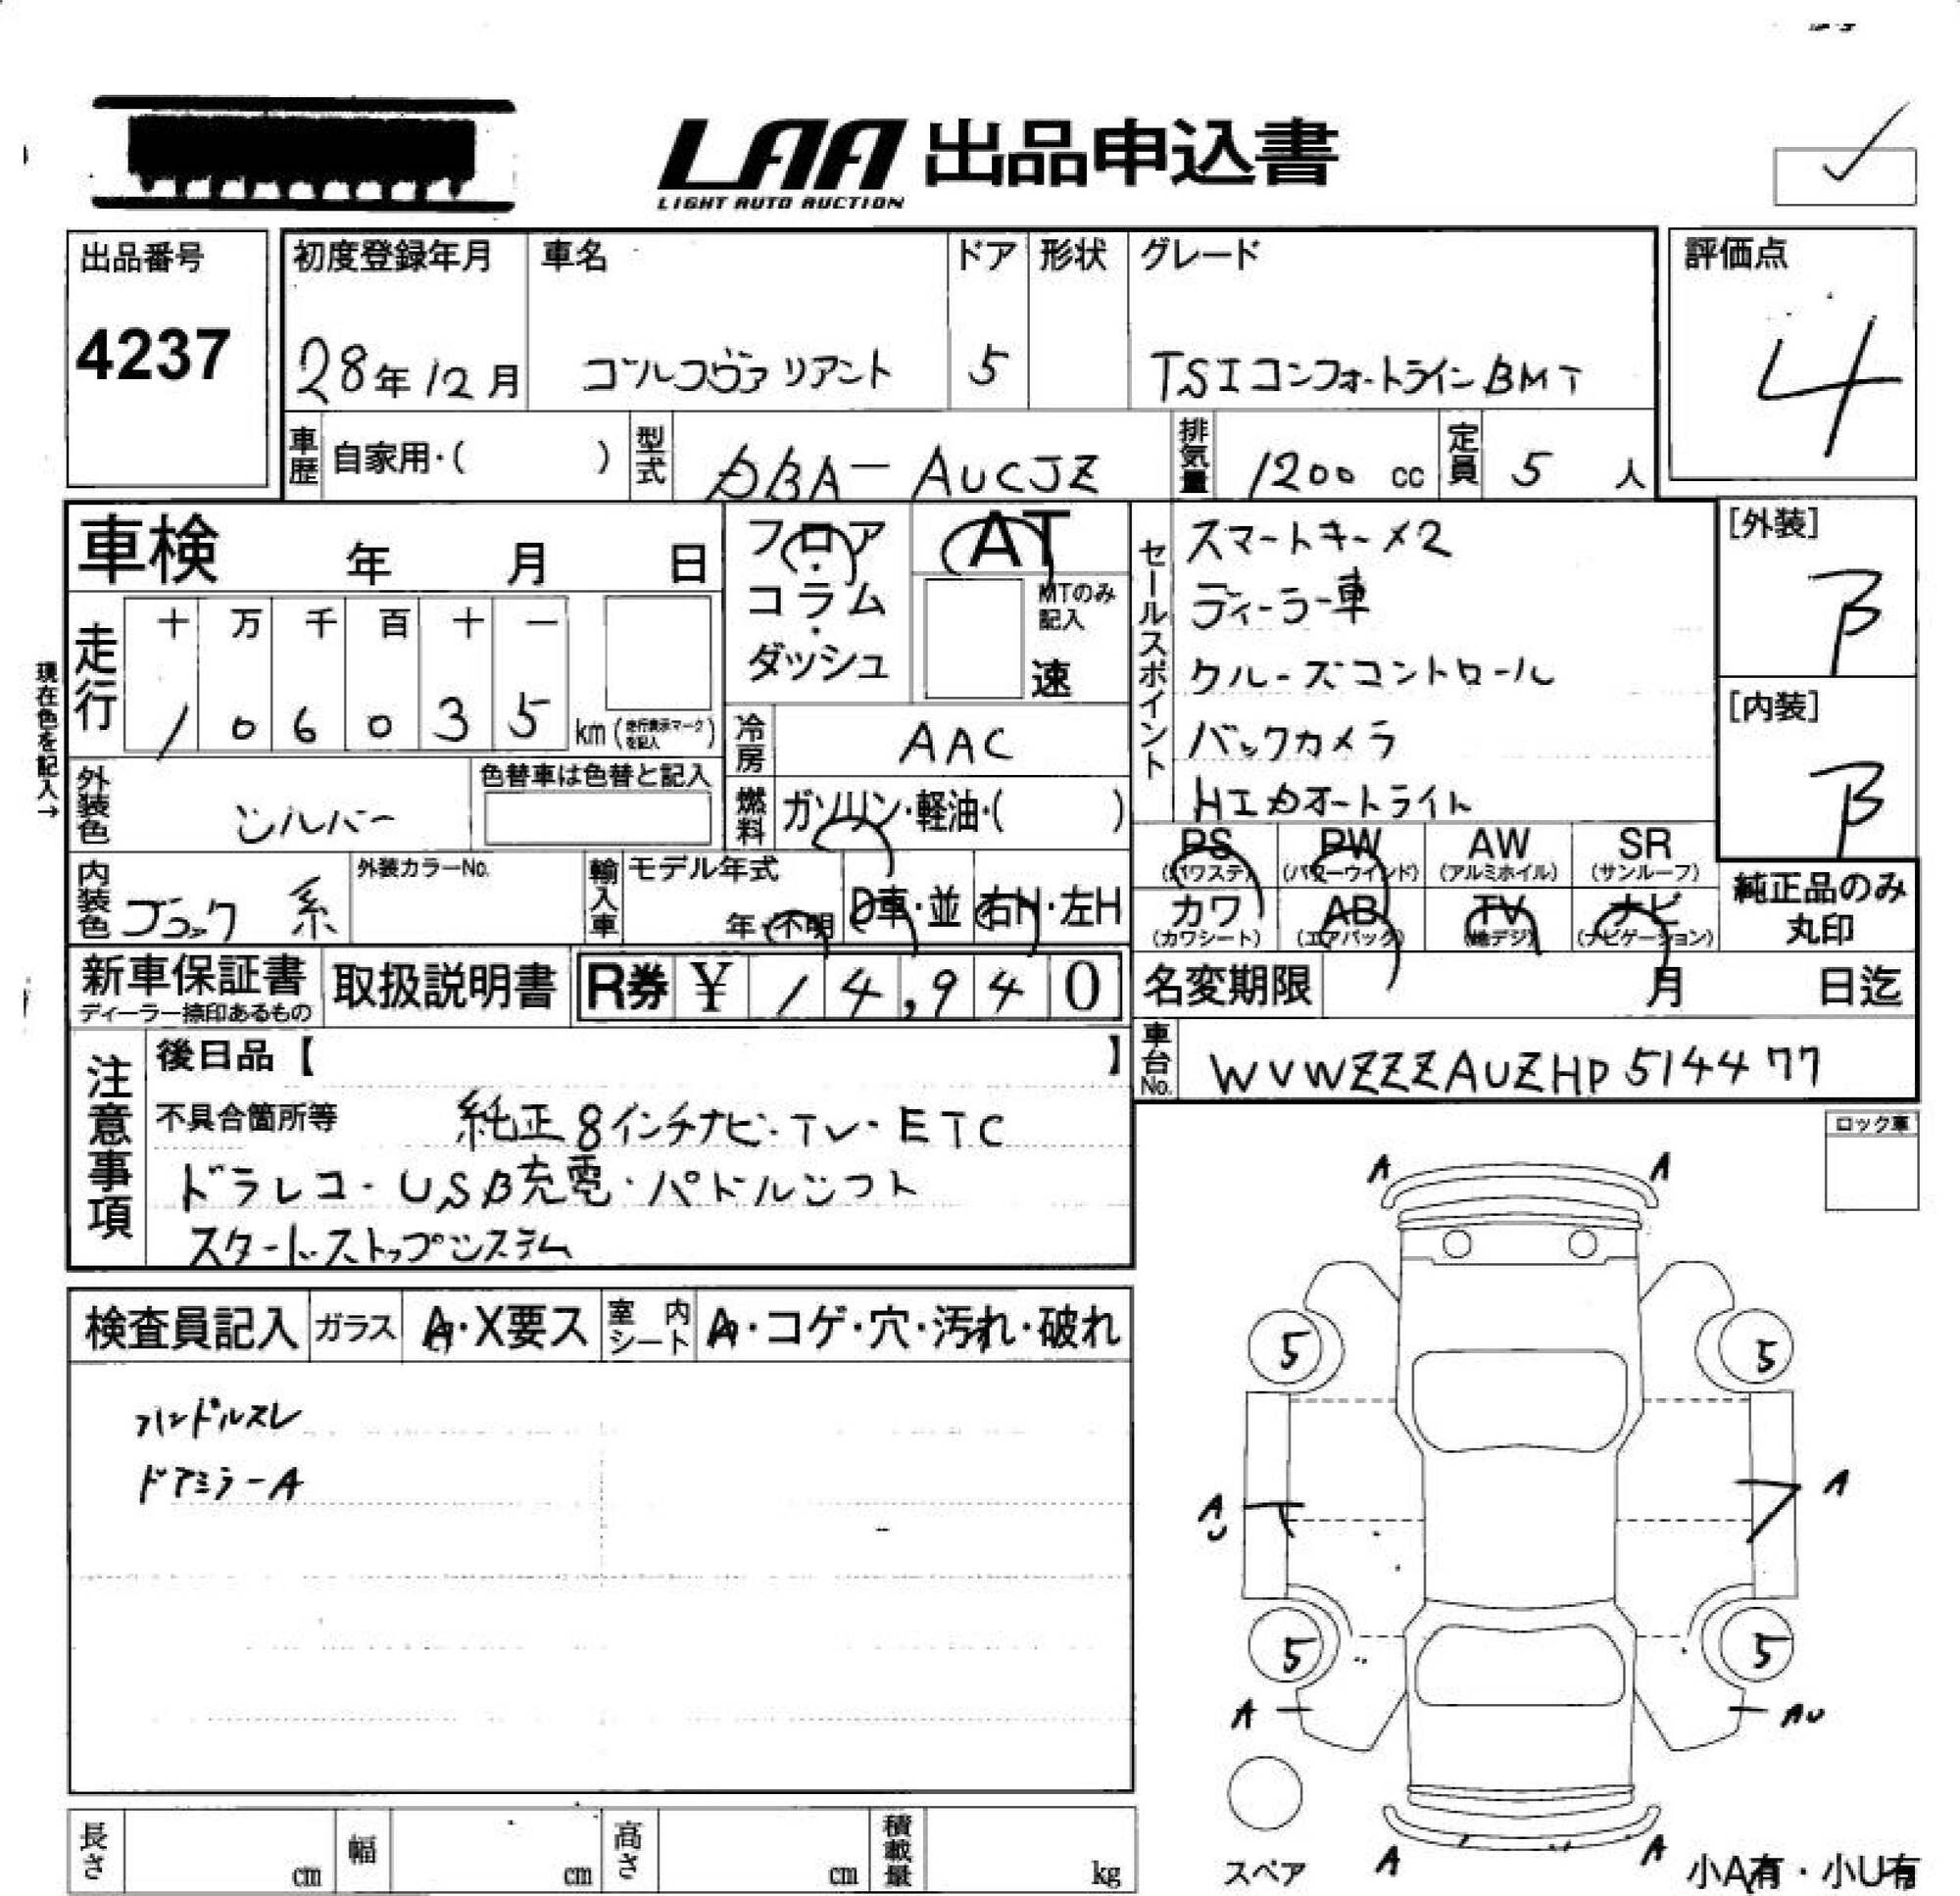 LAA 出品申込書
LIGHT AUTO AUCTION
出品番号
4237
初度登録年月
28年12月
車名
ゴルフヴァリアント
ドア
5
形状
グレード
TSIコンフォートラインBMT
評価点
4
車歴
自家用・( )
型式
DBA-AUCJZ
排気量
1200 cc
定員
5 人
車検 年 月 日
フロア・コラム・ダッシュ
AT
MTのみ記入
速
セールスポイント
スマートキー×2
ディーラー車
クルーズコントロール
バックカメラ
HIDオートライト
[外装]
B
[内装]
B
現在色を記入→
走行
十 万 千 百 十 一
1 0 6 0 3 5 km (走行表示マークを記入)
冷房
AAC
外装色
シルバー
色替車は色替と記入
燃料
ガソリン・軽油・( )
PS (パワステ) PW (パワーウインド) AW (アルミホイル) SR (サンルーフ)
カワ (カワシート) AB (エアバック) TV (地デジ) ナビ (ナビゲーション)
純正品のみ丸印
内装色
ブラック 系
外装カラーNo.
輸入車
モデル年式
年・不明
D車・並
右H・左H
新車保証書
ディーラー捺印あるもの
取扱説明書
R券 ¥ 14,940
名変期限 月 日迄
注意事項
後日品【 】
不具合箇所等 純正8インチナビ・TV・ETC
ドラレコ・USB充電・パドルシフト
スタート・ストップシステム
車台No.
WVWZZZAUZHP514477
ロック車
検査員記入
ガラス
A・X要ス
室内シート
A・コゲ・穴・汚れ・破れ
ハンドルスレ
ドアミラーA
A A
5 5
A
AU
5 5
A AU
A A
スペア
小A有・小U有
長さ cm
幅 cm
高さ cm
積載量 kg